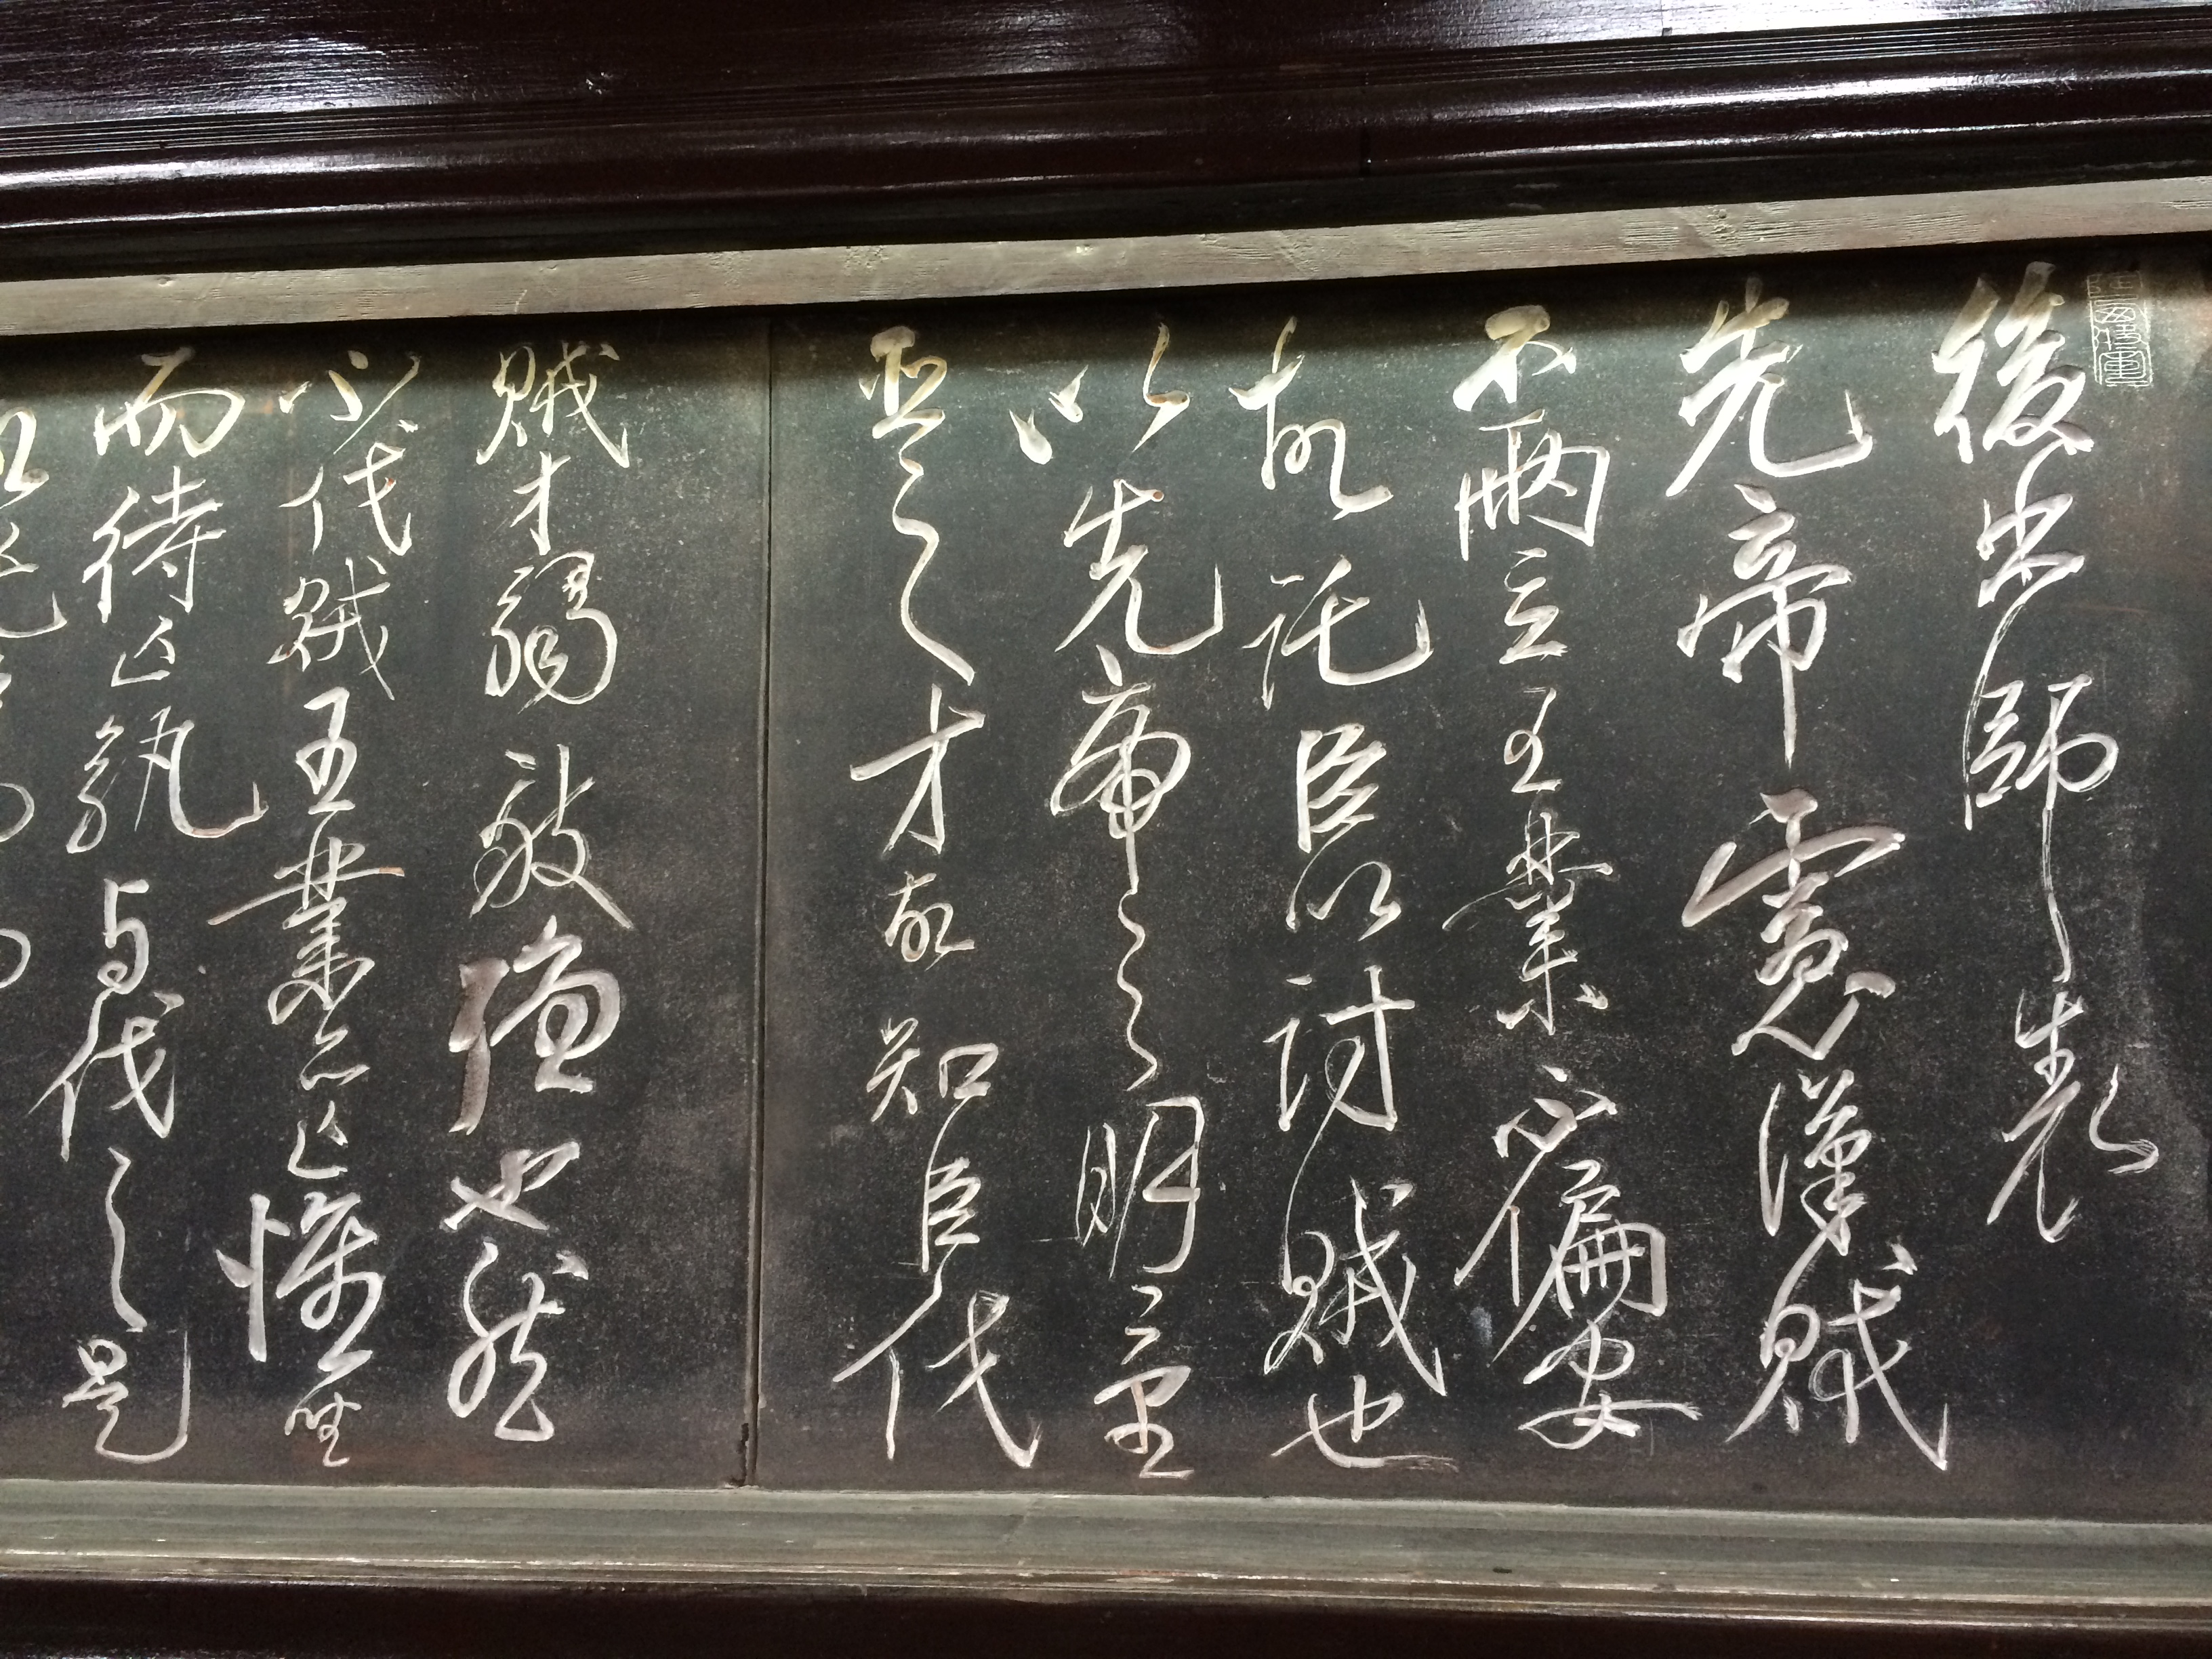 後出師表
先帝慮漢賊
不兩立王業不偏安
故託臣以討賊也
以先帝之明量
臣之才故知臣伐
賊才弱敵彊也然
不伐賊王業亦亡惟坐
而待亡孰与伐之是